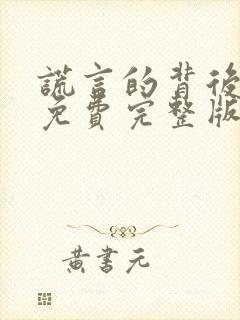 謊言的背後
免費完整版
黃書元